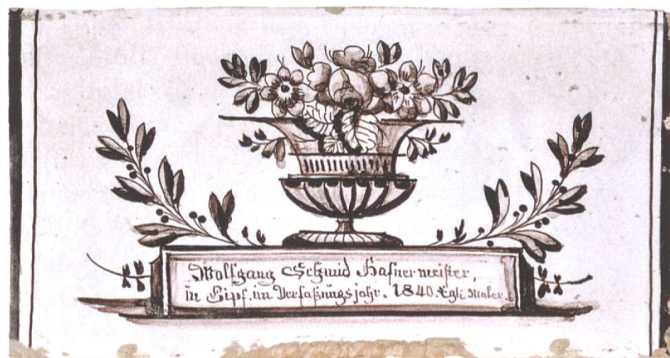 Wolfgang Schmid Hafnermeister,
in Gipf, im Verfaßungsjahr. 1840. Egli Maler.